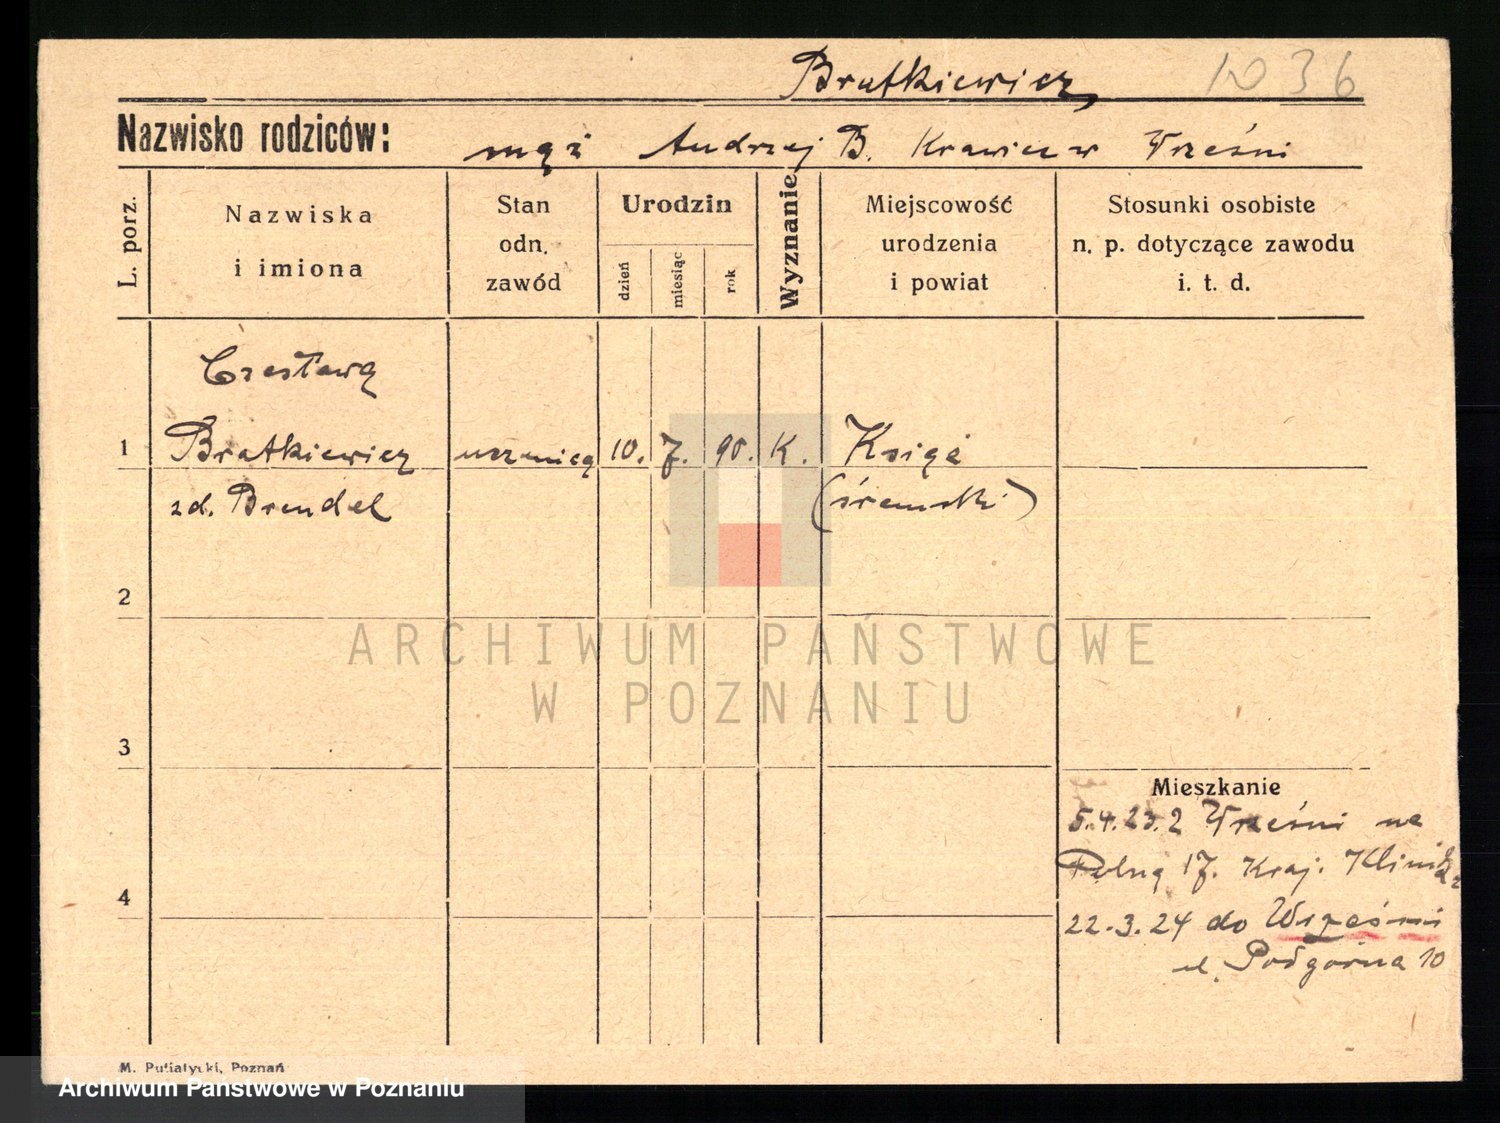 Bratkiewicz, 1036
Nazwisko rodziców: mąż Andrzej B. Krawiec w Wrześni
L. porz.
Nazwiska
i imiona
Stan
odn.
zawód
Urodzin
dzień
miesiąc
rok
Wyznanie
Miejscowość
urodzenia
i powiat
Stosunki osobiste
n. p. dotyczące zawodu
i. t. d.
Czesława
1 Bratkiewicz uczenica 10. 7. 90. K. Książ
zd. Brendel (śremski)
2
ARCHIWUM PAŃSTWOWE
W POZNANIU
3
Mieszkanie
5.4.23. z Wrześni na
Polną 17. Kraj. Klinika
4
22.3.24 do Wrześni
ul. Podgórna 10
M. Putiatycki, Poznań
Archiwum Państwowe w Poznaniu